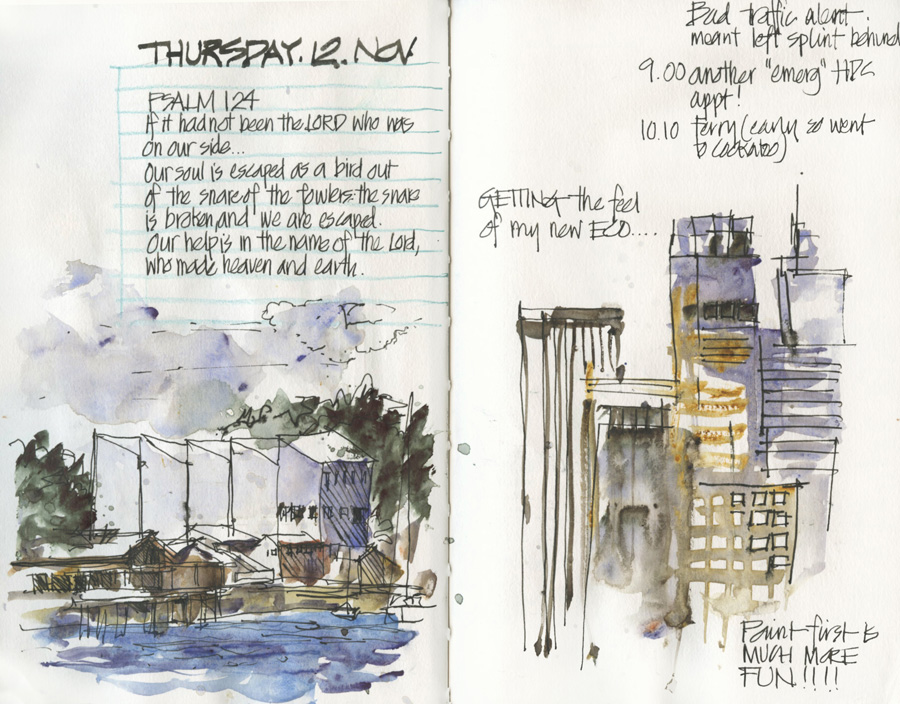 THURSDAY. 12. NOV
PSALM 124
If it had not been the LORD who was
on our side...
Our soul is escaped as a bird out
of the snare of the fowlers: the snare
is broken, and we are escaped.
Our help is in the name of the Lord,
who made heaven and earth.
Bad traffic alert.
meant left splint behind
9.00 another "emerg" HDC
appt!
10.10 ferry (early so went
to Cockatoo)
GETTING the feel
of my new ECO....
Paint first is
MUCH MORE
FUN!!!!